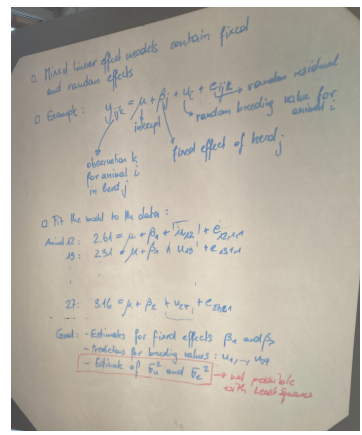 □ Mixed linear effect models contain fixed
and random effects
□ Example: y_ijk = μ + β_j + u_i + e_ijk → random residual
intercept
random breeding value for
animal i
fixed effect of herd j
observation k
for animal i
in herd j
□ Fit the model to the data:
Animal 12: 2.61 = μ + β_1 + u_12 + e_12,1,1
13: 2.31 = μ + β_1 + u_13 + e_13,1,1
27: 3.16 = μ + β_2 + u_27 +
Goal: - Estimates for fixed effects β_1 and
- Prediction for breeding values: u_1, ..., u_27
- Estimate of σ_u² and σ_e² → not possible
with Least Squares